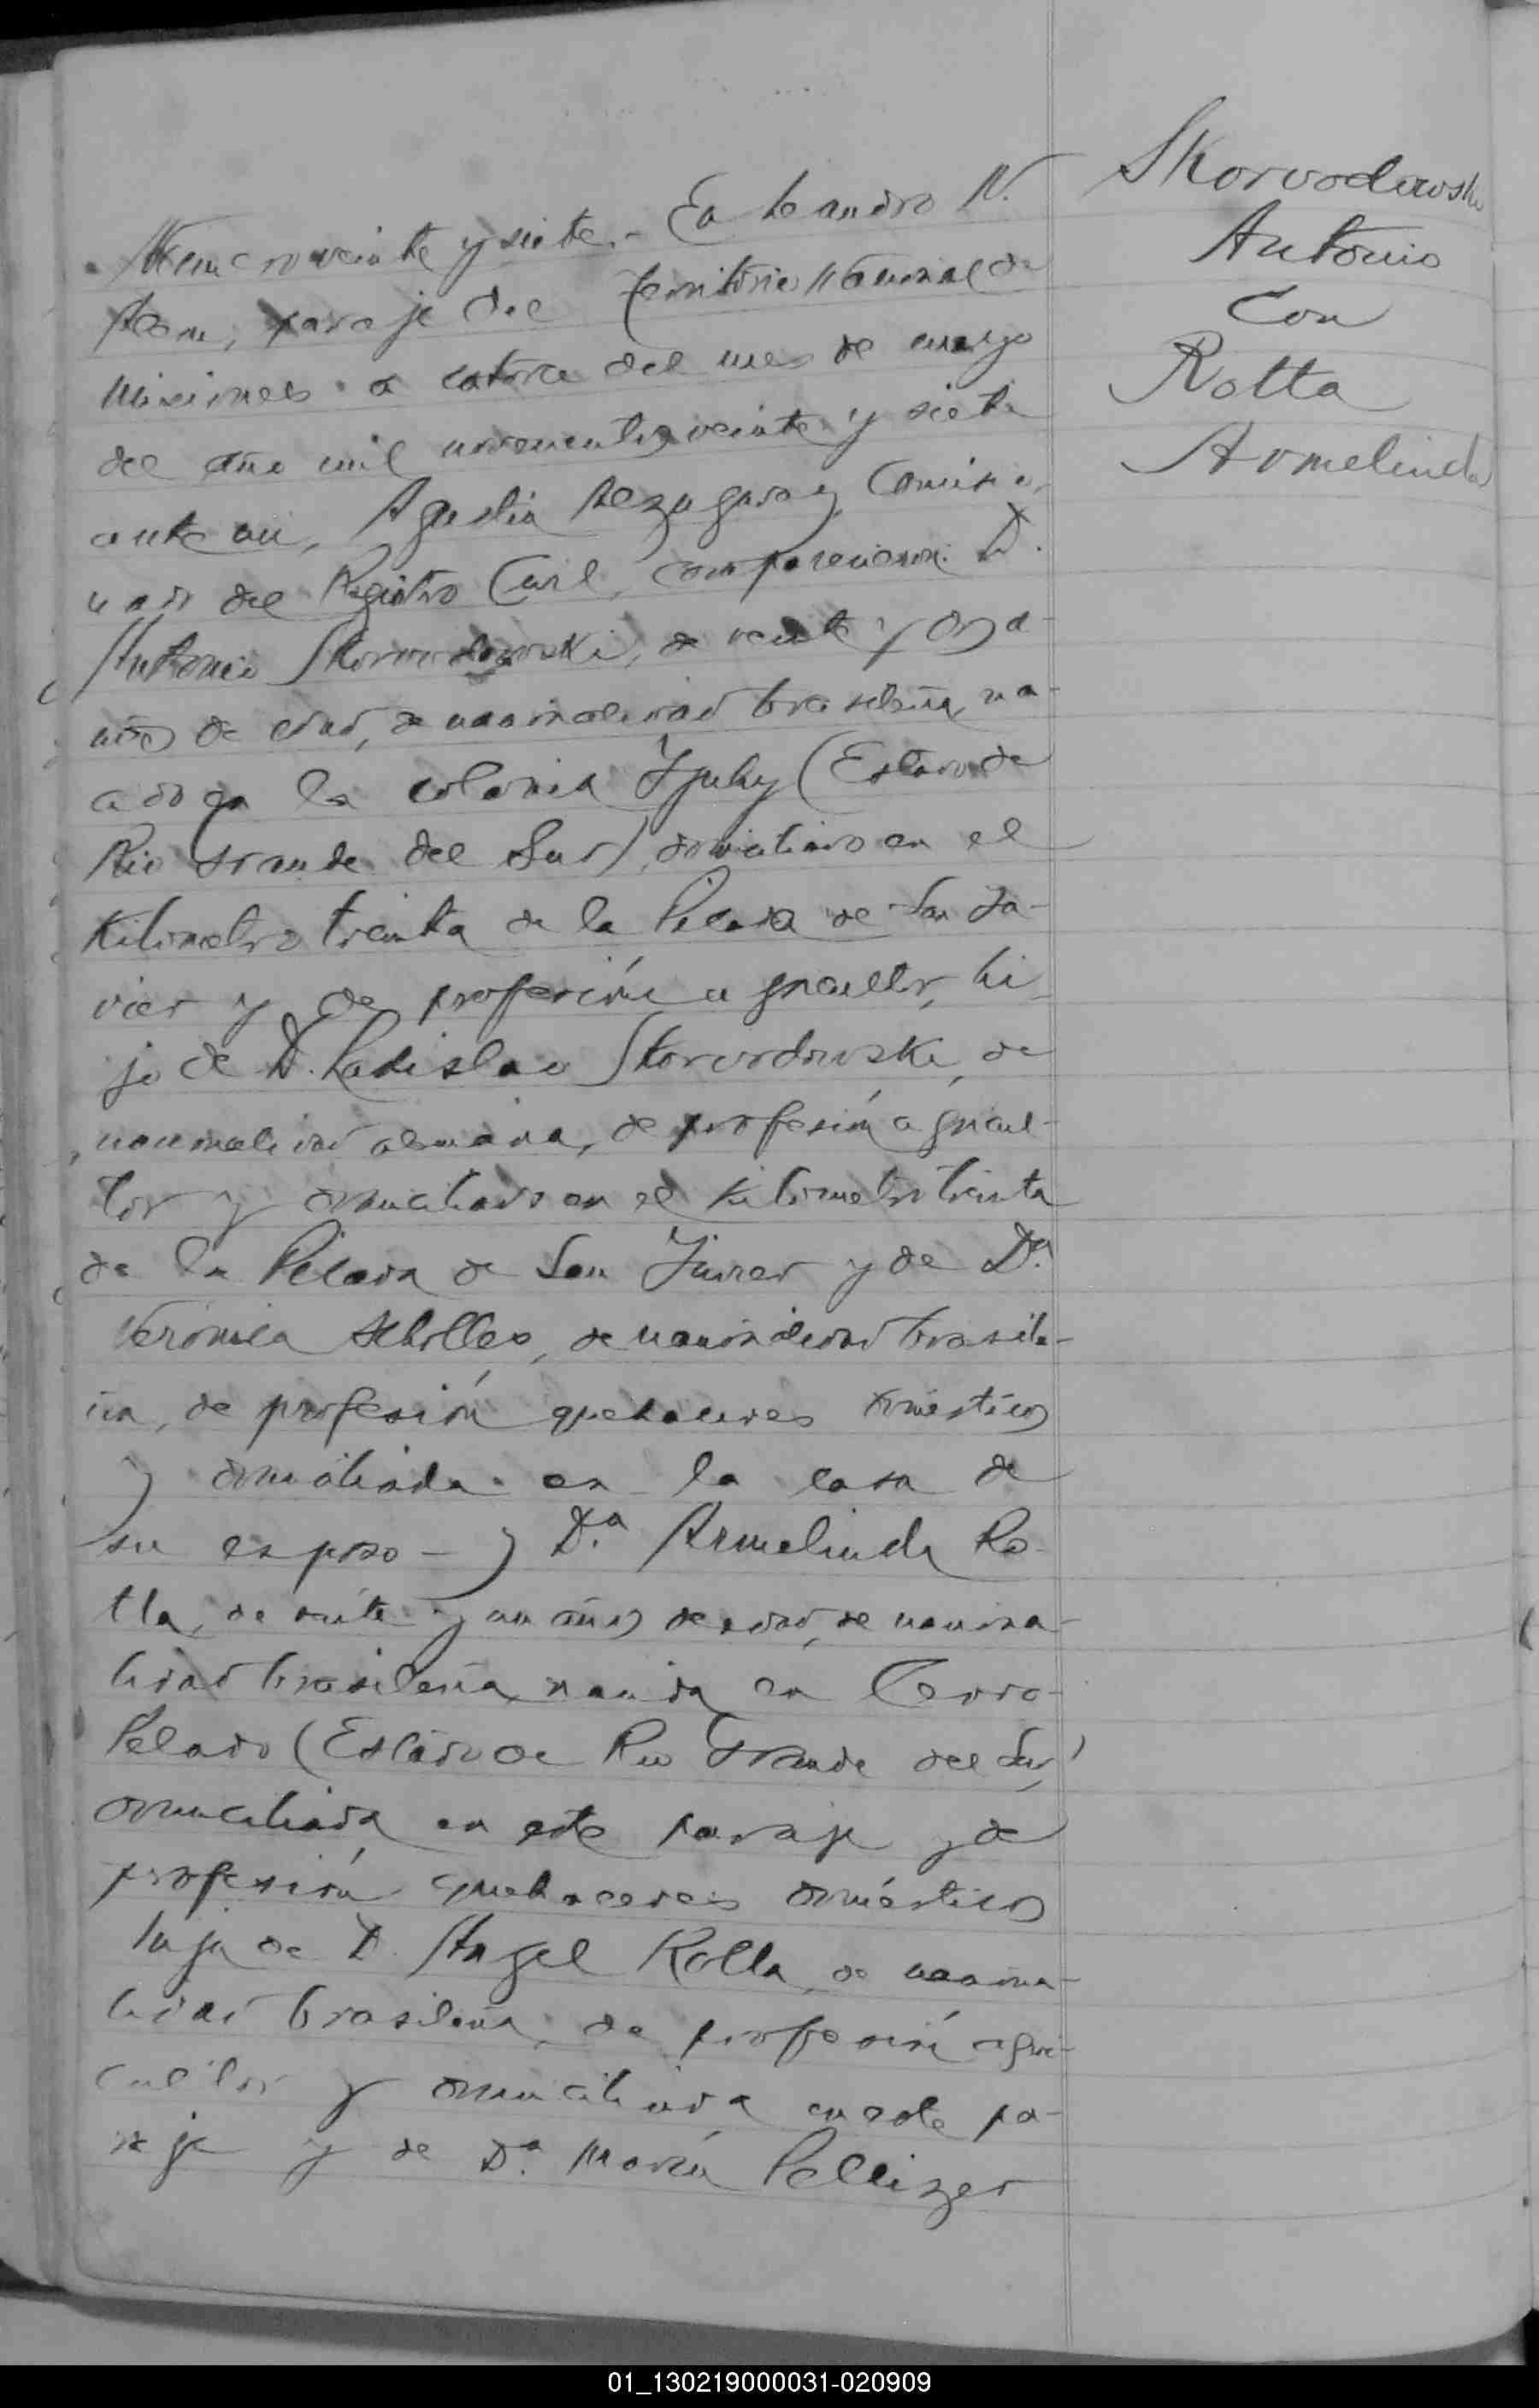 Skorvodowski
Antonio
Con
Rotta
Armelinda
Número veinte y siete.- En Leandro N.
Alem, paraje del Territorio Nacional de
Misiones a catorce del mes de mayo
del año mil novecientos veinte y siete
ante mi, Agustin Comisio-
nado del Registro Civil, comparecieron: D.
Antonio Skorvodowski, de veinte y dos a-
ños de edad, de nacionalidad brasileña, na-
cido en la colonia Yjuhy (Estado de
Rio Grande del Sur), domiciliado en el
Kilometro treinta de la Picada de San Ja-
vier y de profesión agricultor, hi-
jo de D. Ladislao Skorvodowski, de
nacionalidad alemana, de profesión agricul-
tor y domiciliado en el Kilometro treinta
de la Picada de San Javier y de Dª.
Verónica Scholles, de nacionalidad brasile-
ña, de profesión quehaceres domésticos
y domiciliada en la casa de
su esposo - y D.ª Armelinda Ro-
tta, de veinte y un años de edad, de naciona-
lidad brasileña, nacida en Cerro-
Pelado (Estado de Rio Grande del Sur)
domiciliada en este paraje y de
profesión quehaceres domésticos
hija de D. Angel Rotta, de naciona-
lidad brasileña, de profesión agri-
cultor y domiciliada en este pa-
raje y de D.ª María Pellizer
01_130219000031-020909